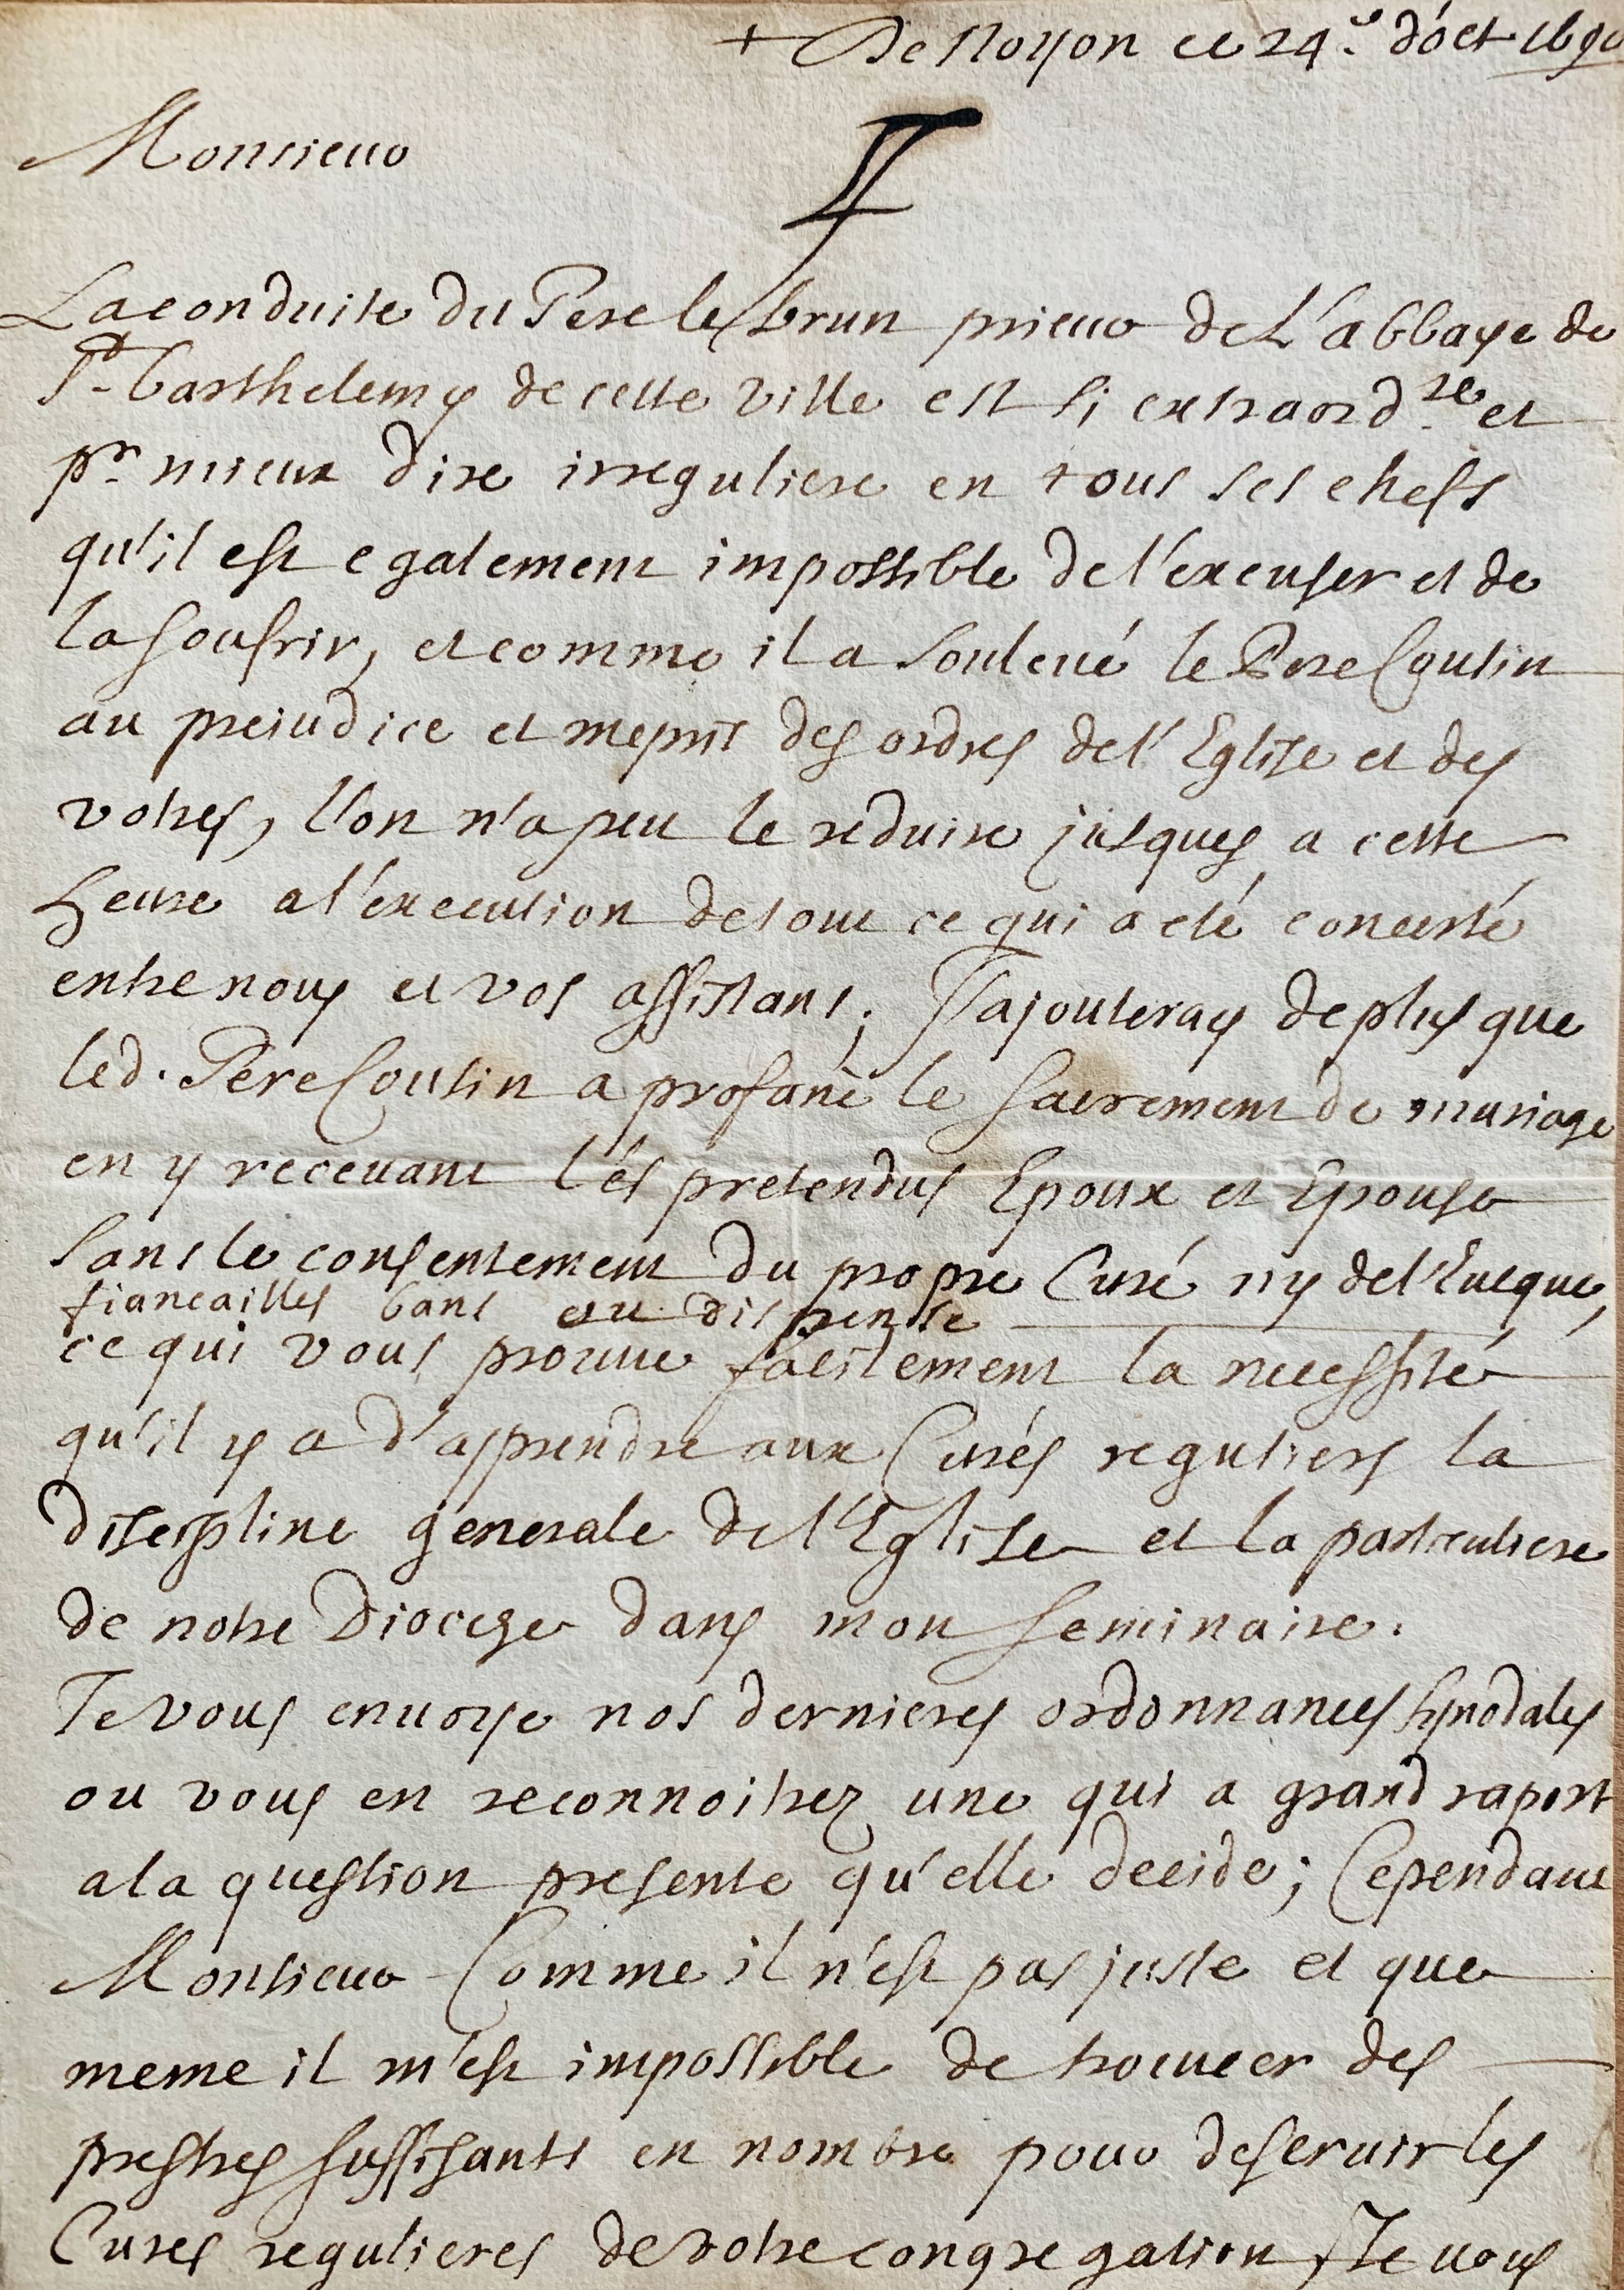 + De Noyon ce 24e d'oct 1690
Monsieur
La conduite du Pere le brun prieur de L'abbaye de
St Barthelemy de cette ville est si extraordre et
pr mieux dire irreguliere en tous ses chefs
qu'il est egalement impossible de l'excuser et de
la soufrir, et comme il a soulevé le Pere Coutin
au prejudice et mepris des ordres de l'Eglise et des
votres, l'on n'a peu le reduire jusques a cette
heure a l'execution de tout ce qui a eté concerté
entre nous et vos assistans; J'ajouteray de plus que
led. Pere Coutin a profané le sacrement de mariage
en y recevant lés pretendus Epoux et Epouse
sans le consentement du propre Curé ny de l'Eveque,
fiancailles bans ou dispense
ce qui vous prouve facilement la necessité
qu'il y a d'apprendre aux Curés reguliers la
discipline generale de l'Eglise et la particuliere
de notre Diocese dans mon seminaire.
Je vous envoye nos dernieres ordonnances synodales
ou vous en reconnoitrez une qui a grand raport
a la question presente qu'elle decide; Cependant
Monsieur Comme il n'est pas juste et que
meme il m'est impossible de trouver des
prestres suffisants en nombre pour deservir les
Cures regulieres de votre congregation, Je vous